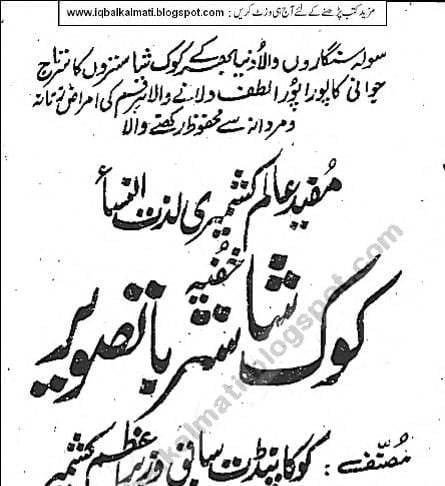 مزید کتب پڑھنے کے لئے آج ہی وزٹ کریں : www.iqbalkalmati.blogspot.com
سولہ سنگاروں والا دُنیا بھر کے کوک شاستروں کا سرتاج
جوانی کا پورا پُورا لطف دِلانے والا ہر قسم کی امراض زنانہ
و مردانہ سے محفوظ رکھنے والا
مُفید عالم کشمیری لذت النساء
خفیہ
کوک شاستر باتصویر
مُصنّف : کوکا پنڈت سابق وزیر اعظم کشمیر
kalmati.blogspot.com